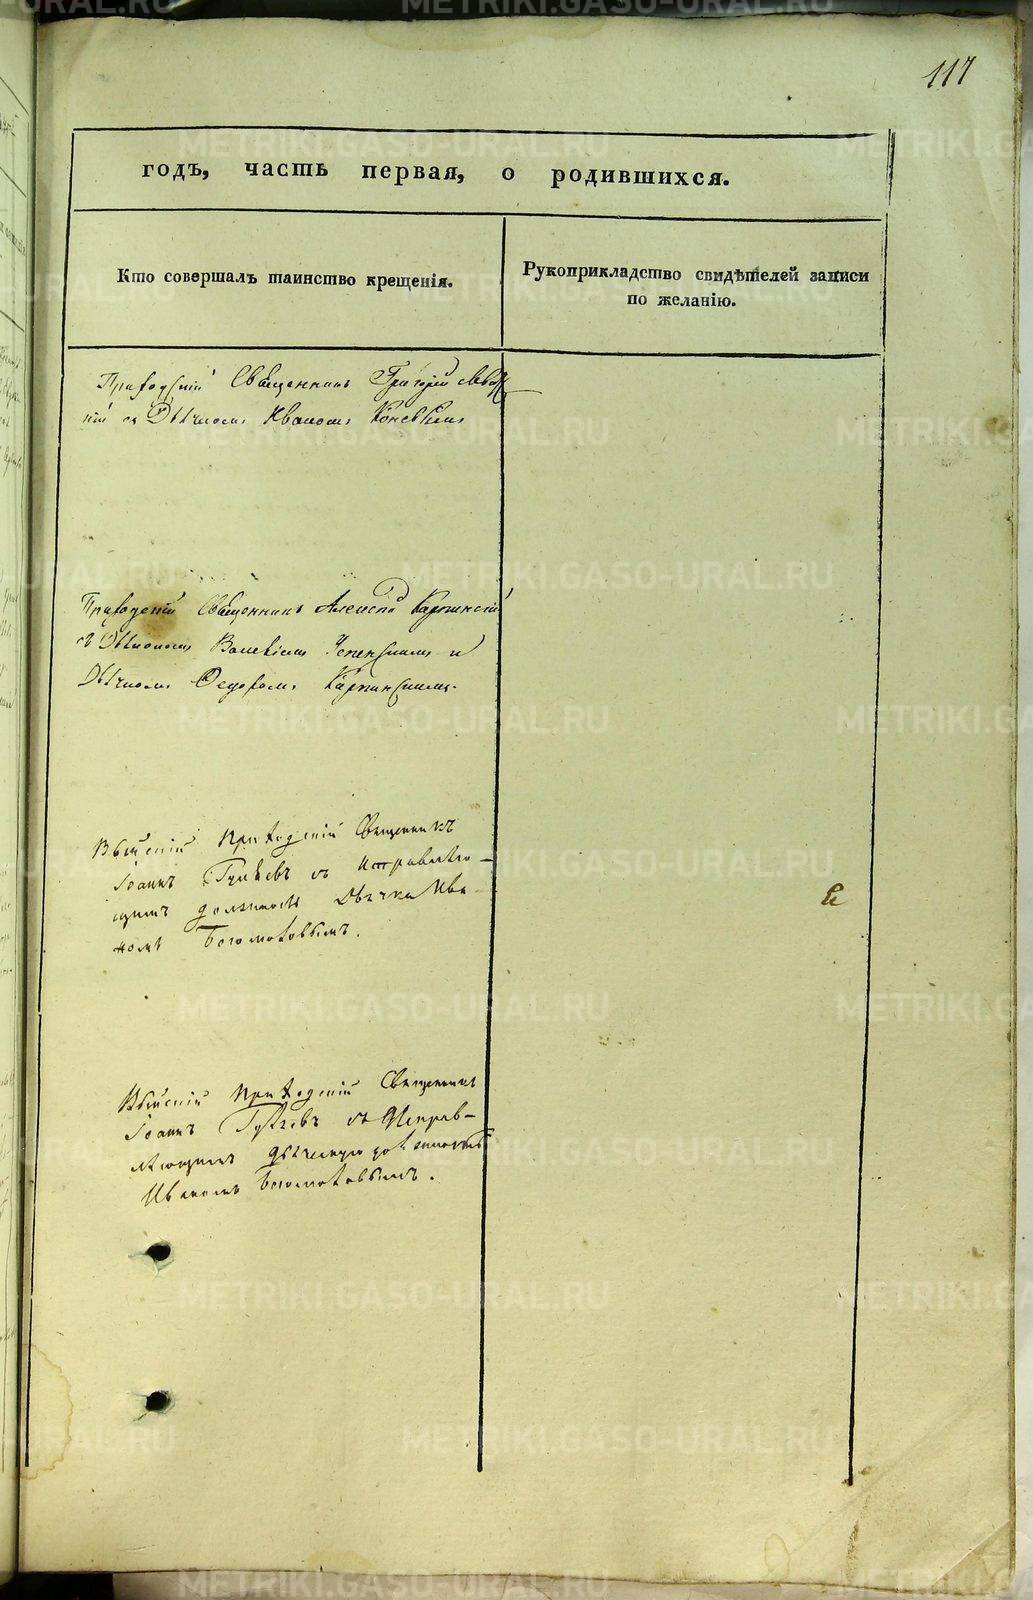 117
годъ, часть первая, о родившихся.
Кто совершалъ таинство крещенія.
Рукоприкладство свидѣтелей записи
по желанію.
Приходскій Священникъ Григорій
кій съ Дьячкомъ Иваномъ
Приходскій Священникъ Алексій Карпинскій
съ Дьякономъ Успенскимъ и
Дьячкомъ Федоромъ Карпинскимъ.
Выйскій Приходскій Священникъ
Іоаннъ съ исправляю-
щимъ должность Дьячка Ива-
номъ Богомоловымъ.
Выйскій Приходскій Священникъ
Іоаннъ съ Исправ-
ляющимъ дьяческую должность
Иваномъ Богомоловымъ.
METRIKI.GASO-URAL.RU